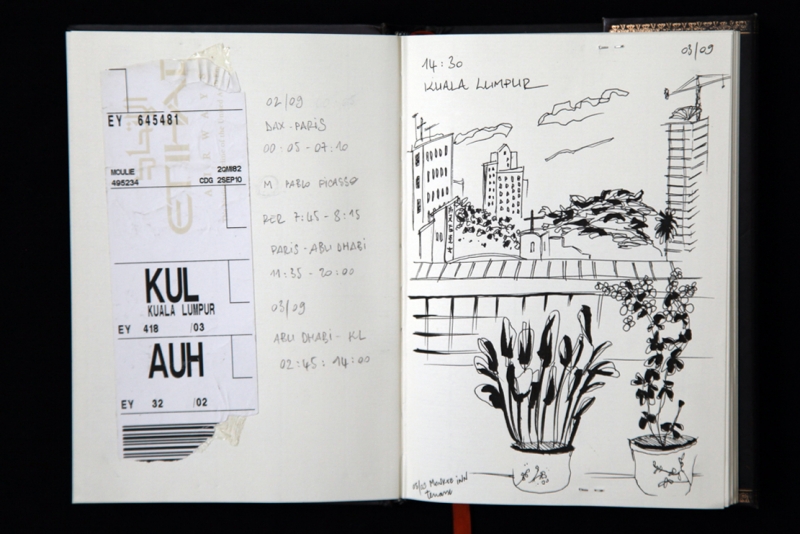 EY 645481
ETIHAD
AIRWAYS
MOULIE 2QMIB2
495234 CDG 2SEP10
KUL
KUALA LUMPUR
EY 418 /03
AUH
EY 32 /02
02/09
DAX - PARIS
00:05 - 07:10
M PABLO PICASSO
RER 7:45 - 8:15
PARIS - ABU DHABI
11:35 - 20:00
03/09
ABU DHABI - KL
02:45 : 14:00
14:30 03/09
KUALA LUMPUR
INN
Terrasse